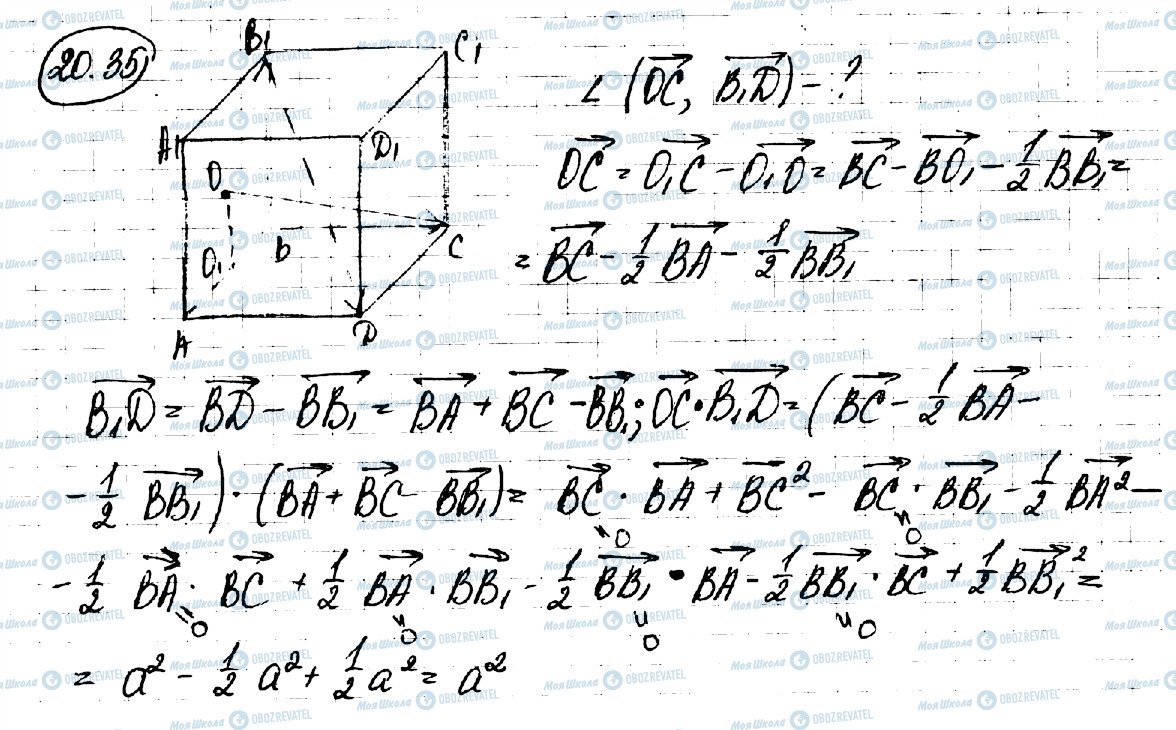 20.35)
B₁ C₁
A₁ D₁
O
O₁ D C
A D
∠ (OC, B₁D) - ?
OC = O₁C - O₁O = BC - BO₁ - 1/2 BB₁ =
= BC - 1/2 BA - 1/2 BB₁
B₁D = BD - BB₁ = BA + BC - BB₁; OC • B₁D = (BC - 1/2 BA -
- 1/2 BB₁) · (BA + BC - BB₁) = BC · BA + BC² - BC · BB₁ - 1/2 BA² -
= 0 = 0
- 1/2 BA · BC + 1/2 BA · BB₁ - 1/2 BB₁ • BA - 1/2 BB₁ · BC + 1/2 BB₁² =
= 0 = 0 = 0 = 0
= a² - 1/2 a² + 1/2 a² = a²